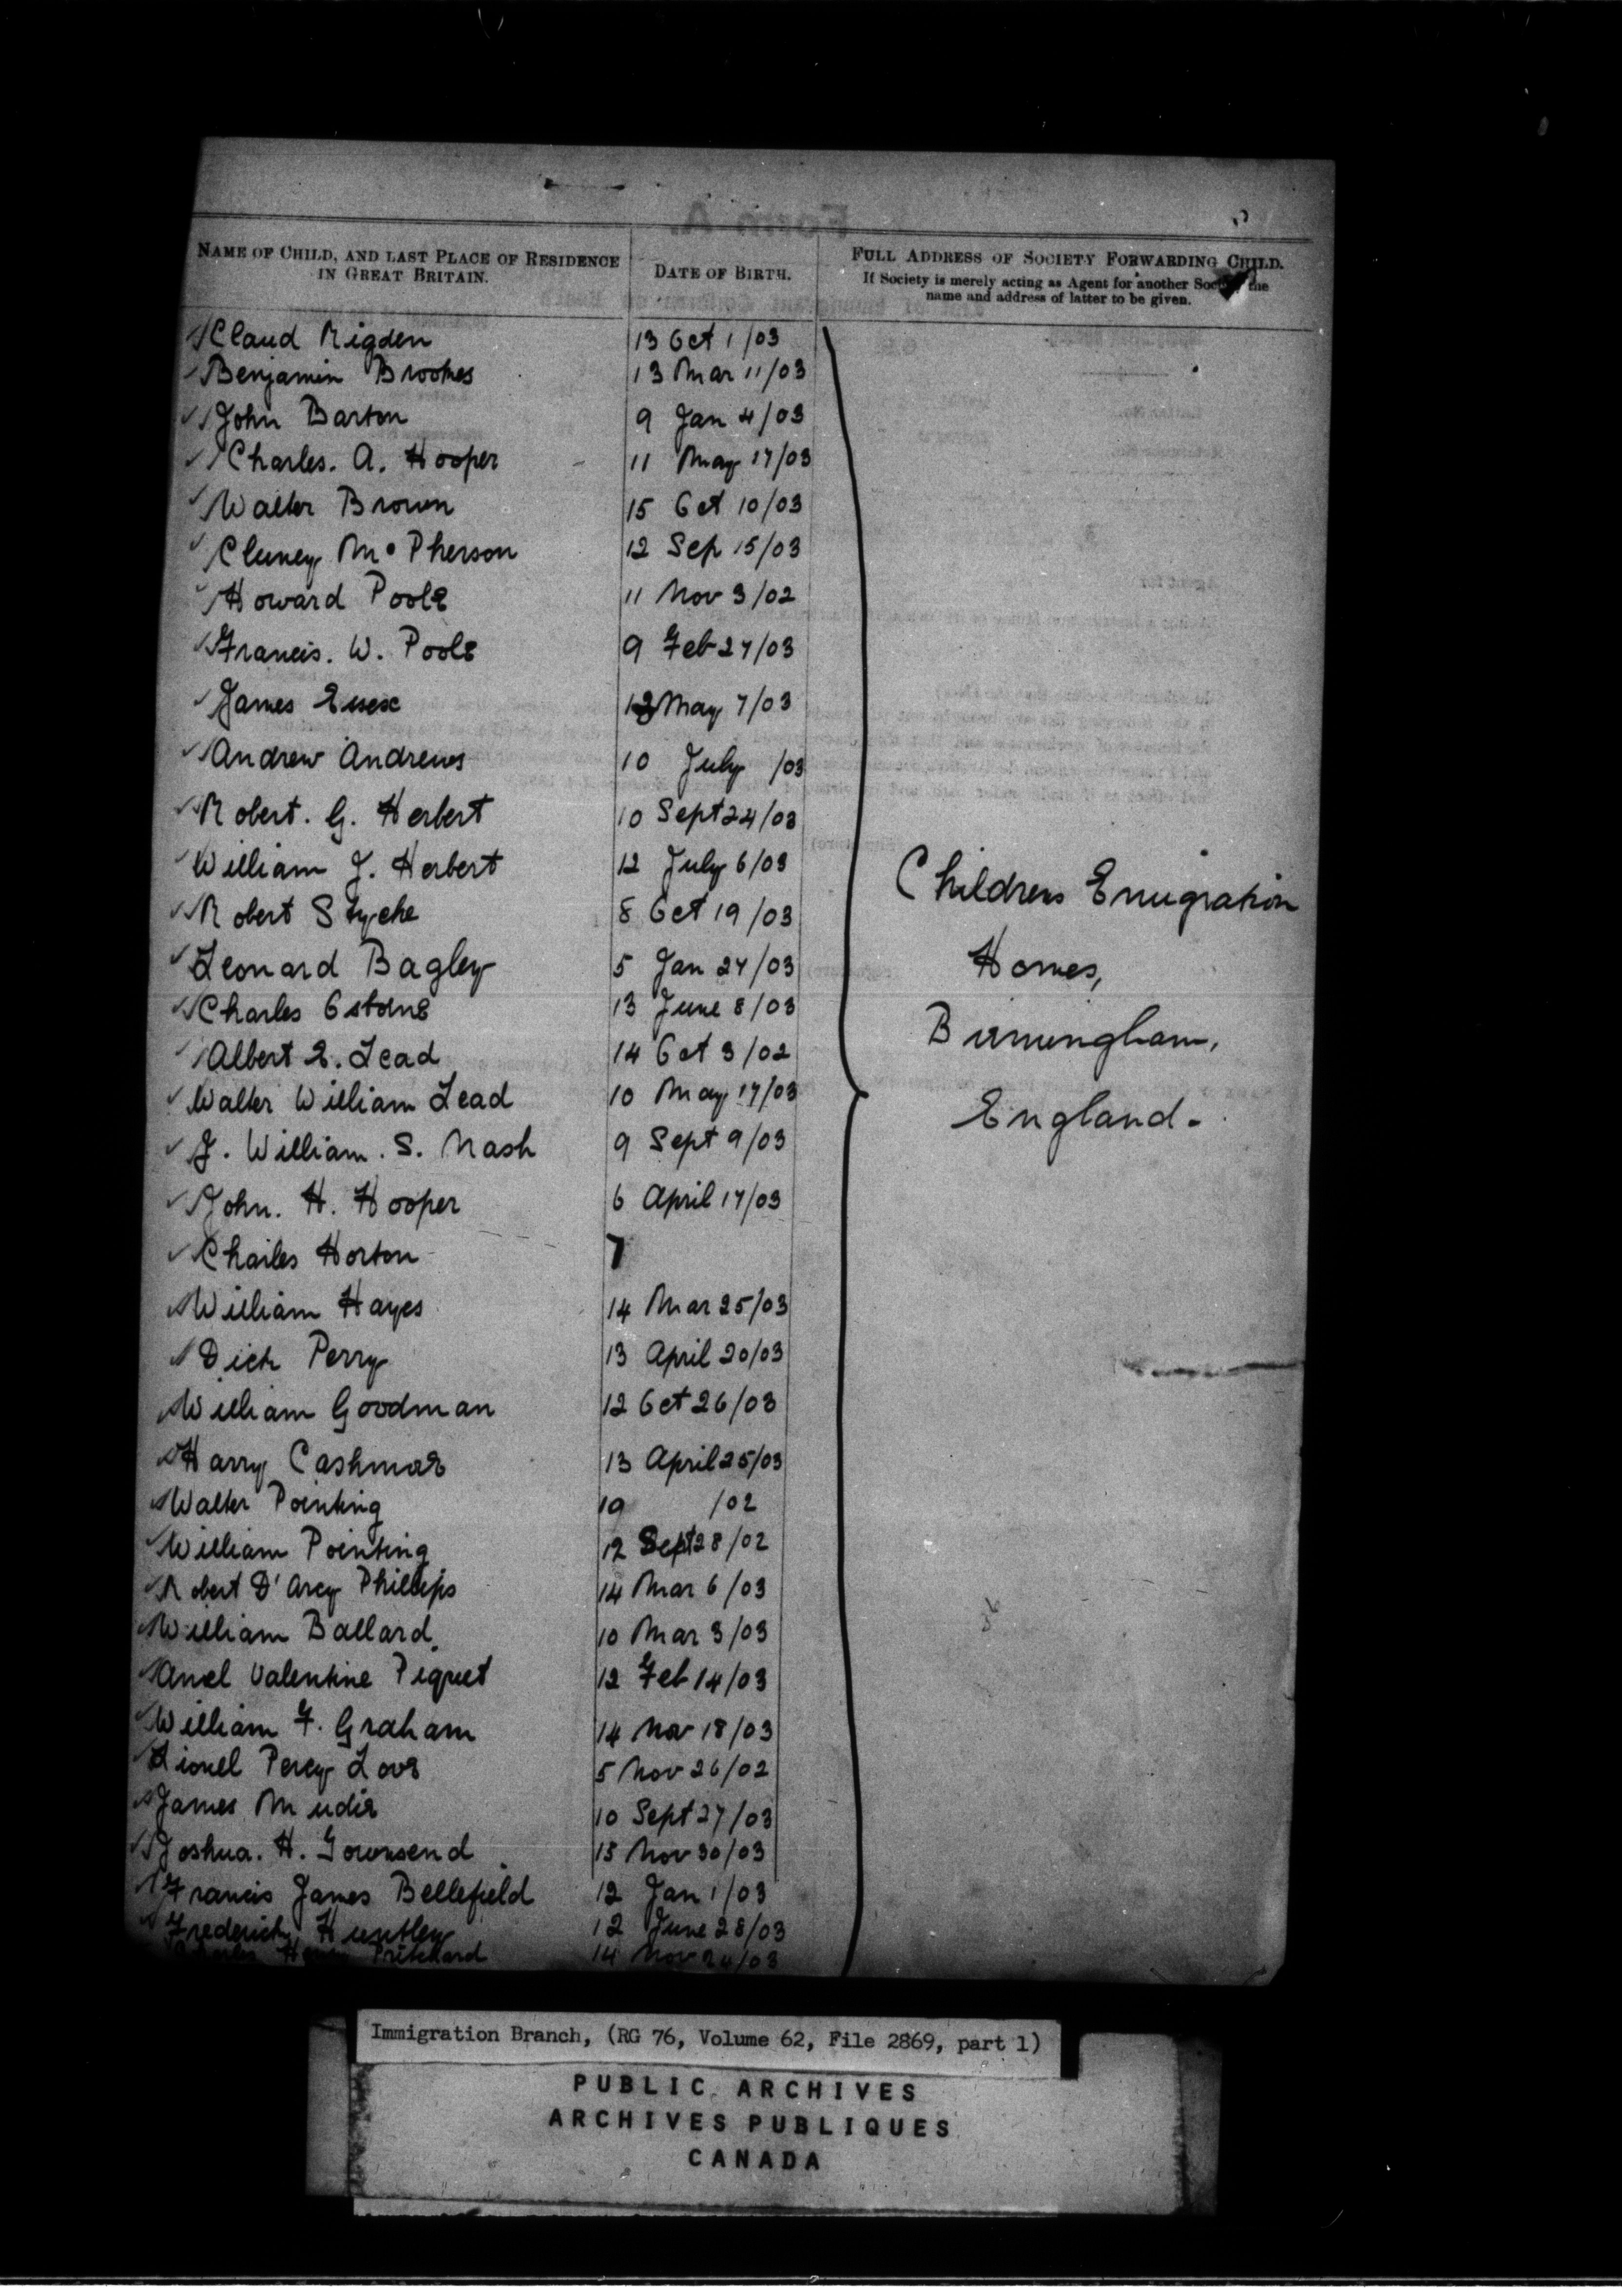 NAME OF CHILD, AND LAST PLACE OF RESIDENCE IN GREAT BRITAIN.
DATE OF BIRTH.
FULL ADDRESS OF SOCIETY FORWARDING CHILD.
If Society is merely acting as Agent for another Society the name and address of latter to be given.
Claud Rigden 13 Oct 1/03
Benjamin Brookes 13 Mar 11/03
John Barton 9 Jan 4/03
Charles. A. Hooper 11 May 17/03
Walter Brown 15 Oct 10/03
Cluney McPherson 12 Sep 15/03
Howard Poole 11 Nov 3/02
Francis. W. Poole 9 Feb 27/03
James Essex 13 May 7/03
Andrew Andrews 10 July /03
Robert. G. Herbert 10 Sept 24/03
William J. Herbert 12 July 6/03
Robert Styche 8 Oct 19/03
Leonard Bagley 5 Jan 27/03
Charles Ostone 13 June 8/03
Albert E. Lead 14 Oct 3/02
Walter William Lead 10 May 17/03
J. William. S. Nash 9 Sept 9/03
John. H. Hooper 6 April 17/03
Charles Horton 7
William Hayes 14 Mar 25/03
Dick Perry 13 April 20/03
William Goodman 12 Oct 26/03
Harry Cashmore 13 April 25/03
Walter Pointing 10 /02
William Pointing 12 Sept 28/02
Robert D'Arcy Phillips 14 Mar 6/03
William Ballard 10 Mar 3/03
Valentine Piquet 12 Feb 14/03
William F. Graham 14 Nov 18/03
Lionel Percy Love 5 Nov 26/02
James Mudie 10 Sept 27/03
Joshua. H. Townsend 15 Nov 30/03
Francis James Bellefield 12 Jan 1/03
Frederick Huntley 12 June 28/03
Pritchard 14 Nov /03
Childrens Emigration
Homes,
Birmingham,
England.
Immigration Branch, (RG 76, Volume 62, File 2869, part 1)
PUBLIC ARCHIVES
ARCHIVES PUBLIQUES
CANADA